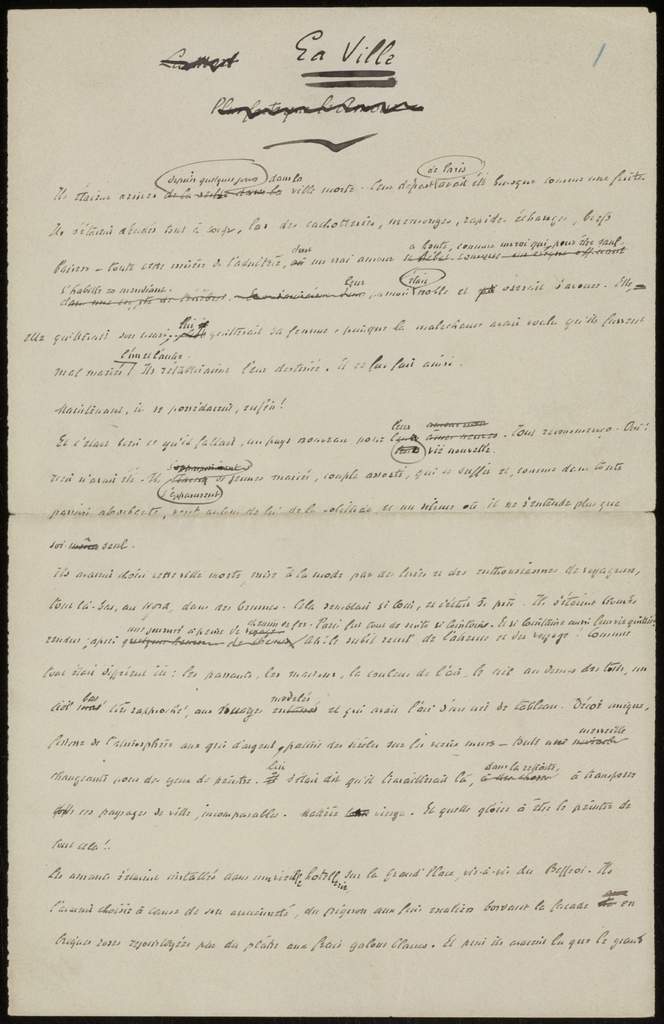 La Ville
1
depuis quelques jours dans la de Paris
Ils étaient arrivés ville morte. Leur départ avait été brusque comme une fuite.
Ils s'étaient décidés tout à coup, las des cachotteries, mensonges, rapides échanges, brefs
baisers — toute cette misère de l'adultère, dont un vrai amour a honte, comme un roi qui, pour être sauf,
s'habille en mendiant. Leur amour était noble et oserait s'avouer. Elle
elle quitterait son mari, lui quitterait sa femme, puisque la malechance avait voulu qu'ils fussent
mal mariés l'un et l'autre. Ils rétabliraient leur destinée. Il en fut fait ainsi.
Maintenant, ils se possédaient, enfin !
Et c'était bien ce qu'il fallait, un pays nouveau pour leur vie nouvelle. Tout recommençait. Ori:
rien n'avait été. Ils s'apparurent de jeunes mariés, couple assorti, qui se suffit et, comme dans toute
passion absorbante, sent autour de lui de la solitude et un silence où il ne s'entende plus que
soi seul.
Ils avaient choisi cette ville morte, mise à la mode par des livres et des enthousiasmes de voyageurs,
tout là-bas, au Nord, dans des brumes. Cela semblait si loin, et c'était si près. Ils s'étaient trouvés
une journée à peine de chemin de fer. Paris fut tout de suite si lointain. Et si lointaine aussi leur vie quittée
rendus, après Ah ! le subit recul de l'absence et du voyage ! Comme
tout était différent ici : les passants, les maisons, la couleur de l'air, le ciel au-dessus des toits, un
ciel bas très rapproché, aux nuages modelés et qui avait l'air d'un ciel de tableau. Décor unique,
finesse de l'atmosphère aux gris d'argent, patine des siècles sur les vieux murs — merveille
changeante pour des yeux de peintre. Lui s'était dit qu'il travaillerait là, dans la retraite, à transposer
ces paysages de ville, incomparables. Matière vierge. Et quelle gloire à être le peintre de
tout cela !..
Les amants s'étaient installés dans un vieil hôtel, sur la Grand'Place, vis-à-vis du Beffroi. Ils
l'avaient choisi à cause de son ancienneté, du pignon aux fins escaliers bordant la façade en
briques roses rejointoyées par du plâtre aux frais galons blancs. Et puis ils avaient lu que le grand